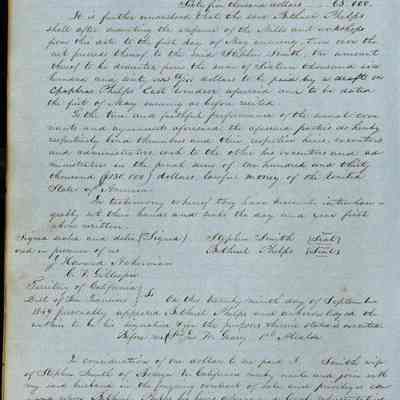 Sixty five thousand dollars 65.000.
It is further understood that the said Bethuel Phelps
shall after deducting the expense of the Mills and workshops
from this date to the first day of May ensuing, turn over the
net proceeds thereof to the said Stephen Smith, the amount
thereof to be deducted from the sum of Sixteen thousand six
hundred and sixty six dollars to be paid by a draft on
Phelps East Windsor aforesaid and to be dated
the first of May ensuing as before recited.
To the true and faithful performance of the several cove
nants and agreements aforesaid the aforesaid parties do hereby
respectively bind themselves and their respective heirs, executors
and administrators each to the other his executors and ad
ministrators in the penal sum of one hundred and thirty
thousand ($130.000) dollars lawful money of the United
States of America.
In testimony whereof they have hereunto interchan
geably set their hands and seals the day and year first
above written.
Signed sealed and (Signed) Stephen Smith {Seal}
ered in presence of us Bethuel Phelps {Seal}
J. Howard Ackerman
C. V. Gillespie
Territory of California }
Dist of San Francisco } Ss On this twenty ninth day of September
1849 personally appeared Bethuel Phelps and acknowledged the
within to be his signature & for the purposes therein stated executed
Before me Jno W. Geary, 1st Alcalde
In consideration of one dollar to me paid I Smith wife
of Stephen Smith of Bodega in California unite and join with
my said husband in the foregoing contract of sale and